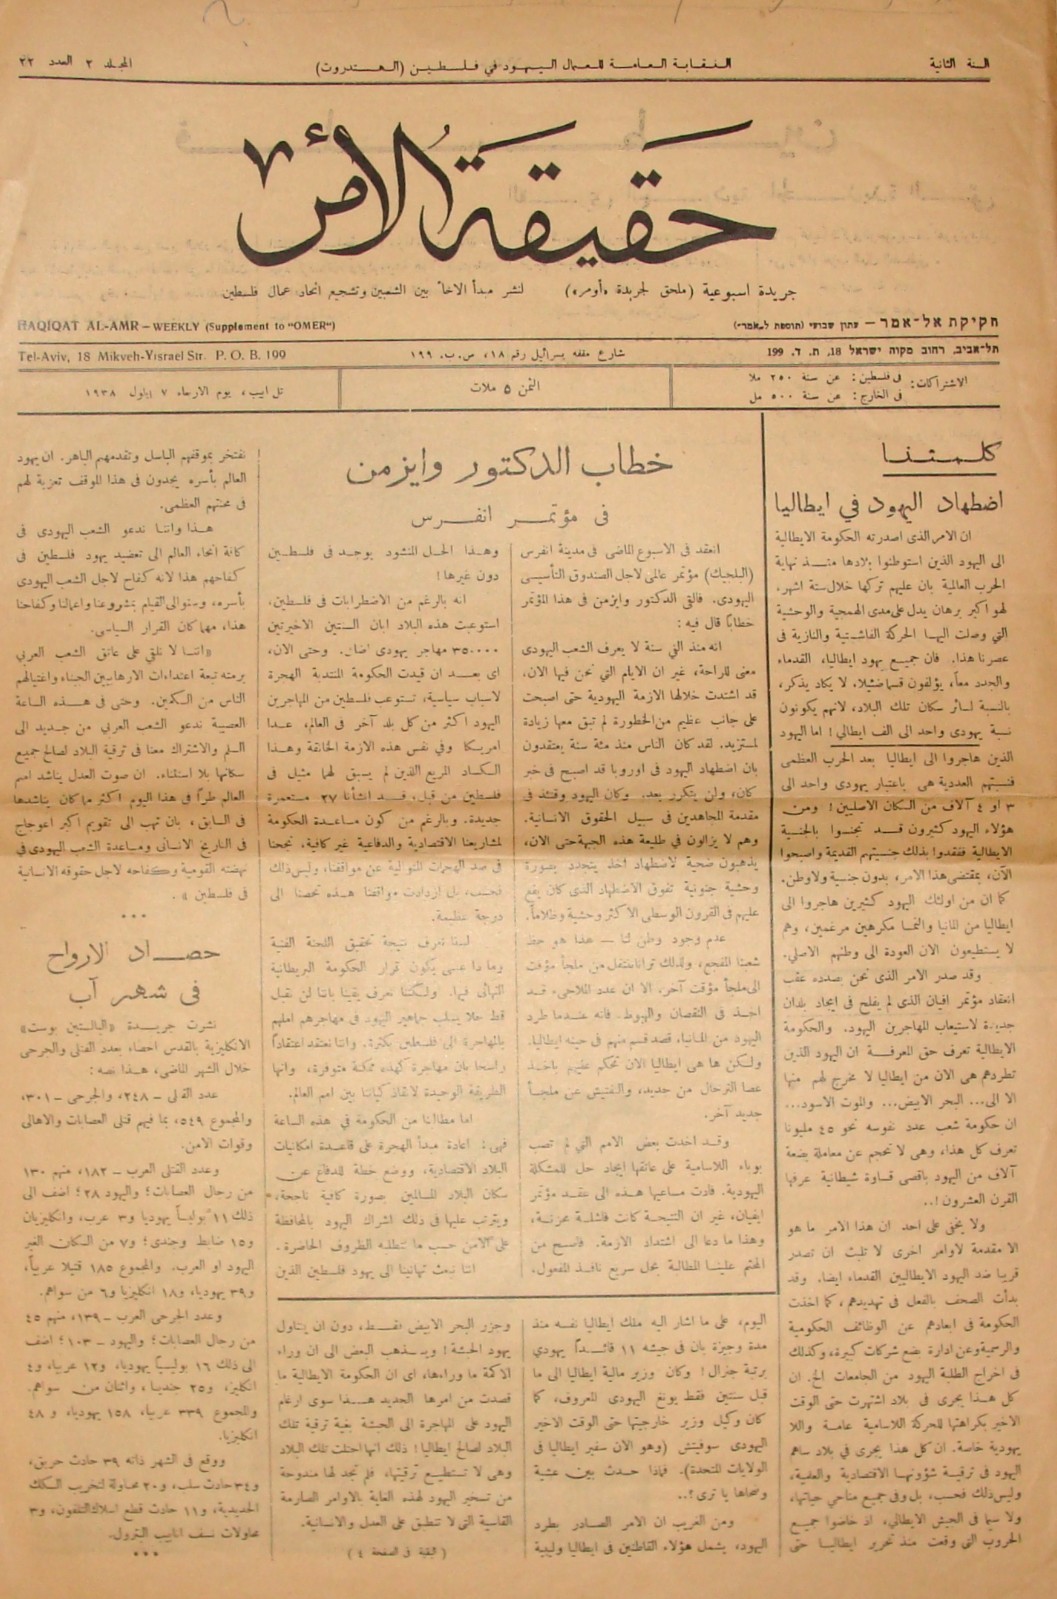 السنة الثانية
النقابة العامة للعمال اليهود في فلسطين (الهستدروت)
المجلد ٢ العدد ٢٢
حقيقة الأمر
جريدة اسبوعية (ملحق لجريدة «أومر»)
لنشر مبدأ الاخاء بين الشعبين وتشجيع اتحاد عمال فلسطين
HAQIQAT AL-AMR – WEEKLY (Supplement to "OMER")
חקיקת אל-אמר – עתון שבועי (תוספת ל„אמר")
Tel-Aviv, 18 Mikveh-Yısrael Str. P.O.B. 199
شارع مقفه يسرائيل رقم ١٨، ص.ب. ١٩٩
תל-אביב, רחוב מקוה ישראל 18, ת. ד. 199
الاشتراكات:
في فلسطين: عن سنة ٢٥٠ ملا
في الخارج: عن سنة ٥٠٠ مل
الثمن ٥ ملات
تل ابيب، يوم الاربعاء ٧ ايلول ١٩٣٨
كلمتنا
اضطهاد اليهود في ايطاليا
ان الامر الذى اصدرته الحكومة الايطالية
الى اليهود الذين استوطنوا بلادها منذ نهاية
الحرب العالمية بان عليهم تركها خلال ستة اشهر.
لهو اكبر برهان يدل على مدى الهمجية والوحشية
التي وصلت اليها الحركة الفاشتية والنازية في
عصرنا هذا. فان جميع يهود ايطاليا، القدماء
والجدد معاً، يؤلفون قسما ضئيلا. لا يكاد يذكر،
بالنسبة لسائر سكان تلك البلاد، لانهم يكونون
نسبة يهودى واحد الى الف ايطالي! اما اليهود
الذين هاجروا الى ايطاليا بعد الحرب العظمى
فنسبتهم العددية هى باعتبار يهودى واحد الى
٣ او ٤ آلاف من السكان الاصليين! ومن
هؤلاء اليهود كثيرون قد تجنسوا بالجنسية
الايطالية ففقدوا بذلك جنسيتهم القديمة واصبحوا
الآن، بمقتضى هذا الامر، بدون جنسية ولا وطن.
كما ان من اولئك اليهود كثيرين هاجروا الى
ايطاليا من المانيا والنمسا مكرهين مرغمين، وهم
لا يستطيعون الان العودة الى وطنهم الاصلي.
وقد صدر الامر الذى نحن بصدده عقب
انعقاد مؤتمر افيان الذى لم يفلح في ايجاد بلدان
جديدة لاستيعاب المهاجرين اليهود. والحكومة
الايطالية تعرف حق المعرفة ان اليهود الذين
تطردهم هى الان من ايطاليا لا مخرج لهم منها
الا الى... البحر الابيض... والموت الاسود...
ان حكومة شعب عدد نفوسه نحو ٤٥ مليونا
تعرف كل هذا، وهى لا تحجم عن معاملة بضعة
آلاف من اليهود باقصى قساوة شيطانية عرفها
القرن العشرون!..
ولا يخفى على احد ان هذا الامر ما هو
الا مقدمة لاوامر اخرى لا تلبث ان تصدر
قريبا ضد اليهود الايطاليين القدماء ايضا. وقد
بدأت الصحف بالفعل في تهديدهم، كما اخذت
الحكومة في ابعادهم عن الوظائف الحكومية
والرسمية وعن ادارة بضع شركات كبيرة، وكذلك
في اخراج الطلبة اليهود من الجامعات الخ. ان
كل هذا يجرى في بلاد اشتهرت حتى الوقت
الاخير بكراهتها للحركة اللاسامية عامة واللا
يهودية خاصة. ان كل هذا يجرى في بلاد ساهم
اليهود في ترقية شؤونها الاقتصادية والعلمية،
وليس ذلك فحسب، بل وفي جميع مناحي حياتها،
ولا سيما في الجيش الايطالي. اذ خاضوا جميع
الحروب التي وقعت منذ تحرير ايطاليا حتى
اليوم، على ما اشار اليه ملك ايطاليا نفسه منذ
مدة وجيزة بان في جيشه ١١ قائداً يهودي
برتبة جنرال! وكان وزير مالية ايطاليا الى ما
قبل سنتين فقط يونغ اليهودى المعروف، كما
كان وكيل وزير خارجيتها حتى الوقت الاخير
اليهودى سوفيتش (وهو الان سفير ايطاليا في
الولايات المتحدة). فماذا حدث بين عشية
وضحاها يا ترى؟..
ومن الغريب ان الامر الصادر بطرد
اليهود، يشمل هؤلاء القاطنين في ايطاليا وليبية
وجزر البحر الابيض فقط، دون ان يتناول
يهود الحبشة! ويذهب البعض الى ان وراء
الاكمة ما وراءها، اى ان الحكومة الايطالية ما
قصدت من امرها الجديد هذا سوى ارغام
اليهود على المهاجرة الى الحبشة بغية ترقية تلك
البلاد لصالح ايطاليا! ذلك انها احتلت تلك البلاد
وهى لا تستطيع ترقيتها، فلم تجد لها مندوحة
من تسخير اليهود لهذه الغاية بالاوامر الصارمة
القاسية التى لا تنطبق على العدل والانسانية.
(البقية في الصفحة ٤)
خطاب الدكتور وايزمن
في مؤتمر انفرس
انعقد في الاسبوع الماضى في مدينة انفرس
(البلجيك) مؤتمر عالمى لاجل الصندوق التأسيسى
اليهودى. فالقى الدكتور وايزمن في هذا المؤتمر
خطابا قال فيه:
انه منذ الفي سنة لا يعرف الشعب اليهودى
معنى للراحة، غير ان الايام التي نحن فيها الان،
قد اشتدت خلالها الازمة اليهودية حتى اصبحت
على جانب عظيم من الخطورة لم تبق معها زيادة
لمستزيد. لقد كان الناس منذ مئة سنة يعتقدون
بان اضطهاد اليهود في اوروبا قد اصبح في خبر
كان، ولن يتكرر بعد. وكان اليهود وقتئذ في
مقدمة المجاهدين في سبيل الحقوق الانسانية.
وهم لا يزالون في طليعة هذه الجبهة حتى الآن،
يذهبون ضحية لاضطهاد اخذ يتجدد بصورة
وحشية جنونية تفوق الاضطهاد الذى كان يقع
عليهم في القرون الوسطى الاكثر وحشية وظلاماً.
عدم وجود وطن لنا – هذا هو حظ
شعبنا المفجع، ولذلك ترانا ننتقل من ملجأ مؤقت
الى ملجأ مؤقت آخر، الا ان عدد الملاجئ، قد
اخذ في النقصان والهبوط. فانه عندما طرد
اليهود من المانيا، قصد قسم منهم في حينه ايطاليا.
ولكن ها هى ايطاليا الان تحكم عليهم باخذ
عصا الترحال من جديد، والتفتيش عن ملجأ
جديد آخر.
وقد اخذت بعض الامم التي لم تصب
بوباء اللاسامية على عاتقها ايجاد حل للمشكلة
اليهودية. فادت مساعيها هذه الى عقد مؤتمر
ايفيان، غير ان النتيجة كانت فاشلة محزنة،
وهذا ما دعا الى اشتداد الازمة. فاصبح من
المحتم علينا المطالبة بحل سريع نافذ المفعول،
وهذا الحل المنشود يوجد في فلسطين
دون غيرها!
انه بالرغم من الاضطرابات في فلسطين،
استوعبت هذه البلاد ابان السنتين الاخيرتين
٣٥٠٠٠ مهاجر يهودى اضافي. وحتى الان،
اى بعد ان قيدت الحكومة المنتدبة الهجرة
لاسباب سياسية، تستوعب فلسطين من المهاجرين
اليهود اكثر من كل بلد آخر في العالم، عدا
امريكا وفي نفس هذه الازمة الخانقة وهذا
الكساد المريع الذين لم يسبق لهما مثيل في
فلسطين من قبل، قد انشأنا ٢٧ مستعمرة
جديدة. وبالرغم من كون مساعدة الحكومة
لمشاريعنا الاقتصادية والدفاعية غير كافية. نجحنا
في صد الهجمات المتوالية عن مواقعنا، وليس ذلك
فحسب، بل ازدادت مواقفنا هذه تحصنا الى
درجة عظيمة.
لسنا نعرف نتيجة تحقيق اللجنة الفنية
وما ذا عسى يكون قرار الحكومة البريطانية
النهائى فيها. ولكننا نعرف يقينا باننا لن نقبل
قط حلا يسلب جماهير اليهود في مهاجرهم املهم
بالمهاجرة الى فلسطين بكثرة. واننا نعتقد اعتقاداً
راسخا بان مهاجرة كهذه ممكنة متوفرة، وانها
الطريقة الوحيدة لانقاذ كياننا بين امم العالم.
اما مطالبنا من الحكومة في هذه الساعة
فهى: اعادة مبدأ الهجرة على قاعدة امكانيات
البلاد الاقتصادية، ووضع خطة للدفاع عن
سكان البلاد المسالمين بصورة كافية ناجحة،
ويترتب عليها في ذلك اشراك اليهود بالمحافظة
على الامن حسب ما تتطلبه الظروف الحاضرة.
اننا نبعث تهانينا الى يهود فلسطين الذين
نفتخر بموقفهم الباسل وتقدمهم الباهر. ان يهود
العالم بأسره يجدون في هذا الموقف تعزية لهم
في محنتهم العظمى.
هذا واننا ندعو الشعب اليهودى في
كافة انحاء العالم الى تعضيد يهود فلسطين في
كفاحهم هذا لانه كفاح لاجل الشعب اليهودى
بأسره، وسنوالى القيام بمشروعنا واعمالنا وكفاحنا
هذا، مهما كان القرار السياسى.
«اننا لا نلقي على عاتق الشعب العربي
برمته تبعة اعتداءات الارهابيين الجبناء واغتيالهم
الناس من المكمن. وحتى في هذه الساعة
العصيبة ندعو الشعب العربي من جديد الى
السلم والاشتراك معنا في ترقية البلاد لصالح جميع
سكانها بلا استثناء. ان صوت العدل يناشد امم
العالم طراً في هذا اليوم اكثر مما كان يناشدها
في السابق، بان تهب الى تقويم اكبر اعوجاج
في التاريخ الانسانى ومساعدة الشعب اليهودى في
نهضته القومية وكفاحه لاجل حقوقه الانسانية
في فلسطين».
***
حصاد الارواح
في شهر آب
نشرت جريدة «البالستين بوست»
الانكليزية بالقدس احصاء بعدد القتلى والجرحى
خلال الشهر الماضى، هذا نصه:
عدد القتلى – ٢٤٨، والجرحى – ٣٠١،
والمجموع ٥٤٩، بما فيهم قتلى العصابات والاهالى
وقوات الامن.
وعدد القتلى العرب – ١٨٢، منهم ١٣٠
من رجال العصابات؛ واليهود ٢٨؛ اضف الى
ذلك ١١ بوليساً يهوديا و٣ عرب، وانكليزيان
و١٥ ضابط وجندى؛ و٧ من السكان الغير
اليهود او العرب. والمجموع ١٨٥ قتيلا عربياً،
و٣٩ يهوديا، و١٨ انكليزيا و٦ من سواهم.
وعدد الجرحى العرب – ١٣٩، منهم ٤٥
من رجال العصابات؛ واليهود – ١٠٣؛ اضف
الى ذلك ١٦ بوليسياً يهوديا، و١٢ عربيا، و٤
انكليز، و٢٥ جنديا، واثنان من سواهم.
والمجموع ٣٣٩ عربيا، ١٥٨ يهوديا، و٤٨
انكليزيا.
ووقع في الشهر ذاته ٣٩ حادث حريق،
و٣٤ حادث سلب، و٢٠ محاولة لتخريب السكك
الحديدية، و١١ حادث قطع اسلاك التلفون، و٣
محاولات نسف انابيب البترول.
***